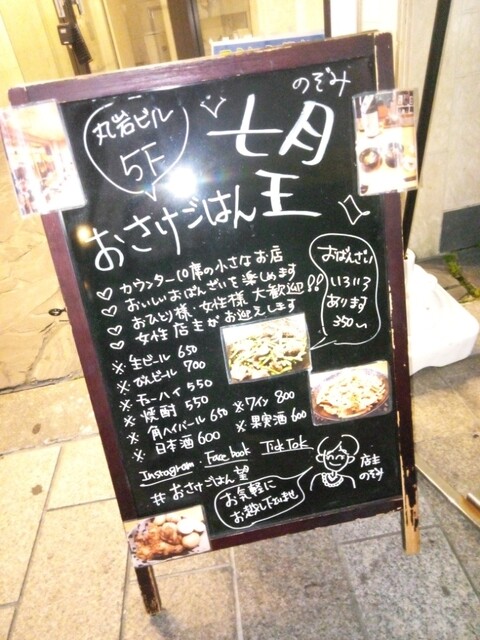 丸岩ビル
5F
のぞみ
七月
王
おさけごはん
♡ カウンター10席の小さなお店
♡ おいしいおばんざいを楽しめます
♡ おひとり様、女性様 大歓迎!!
♡ 女性店主がお迎えします
おばんざい
いろいろ
あります
350〜
※ 生ビール 650
※ びんビール 700
※ チューハイ 550
※ 焼酎 550
※ 角ハイボール 650
※ 日本酒 600
※ ワイン 800
※ 果実酒 600
Instagram Facebook TickTok
# おさけごはん望
お気軽に
お越し下さいませ
店主
のぞみ